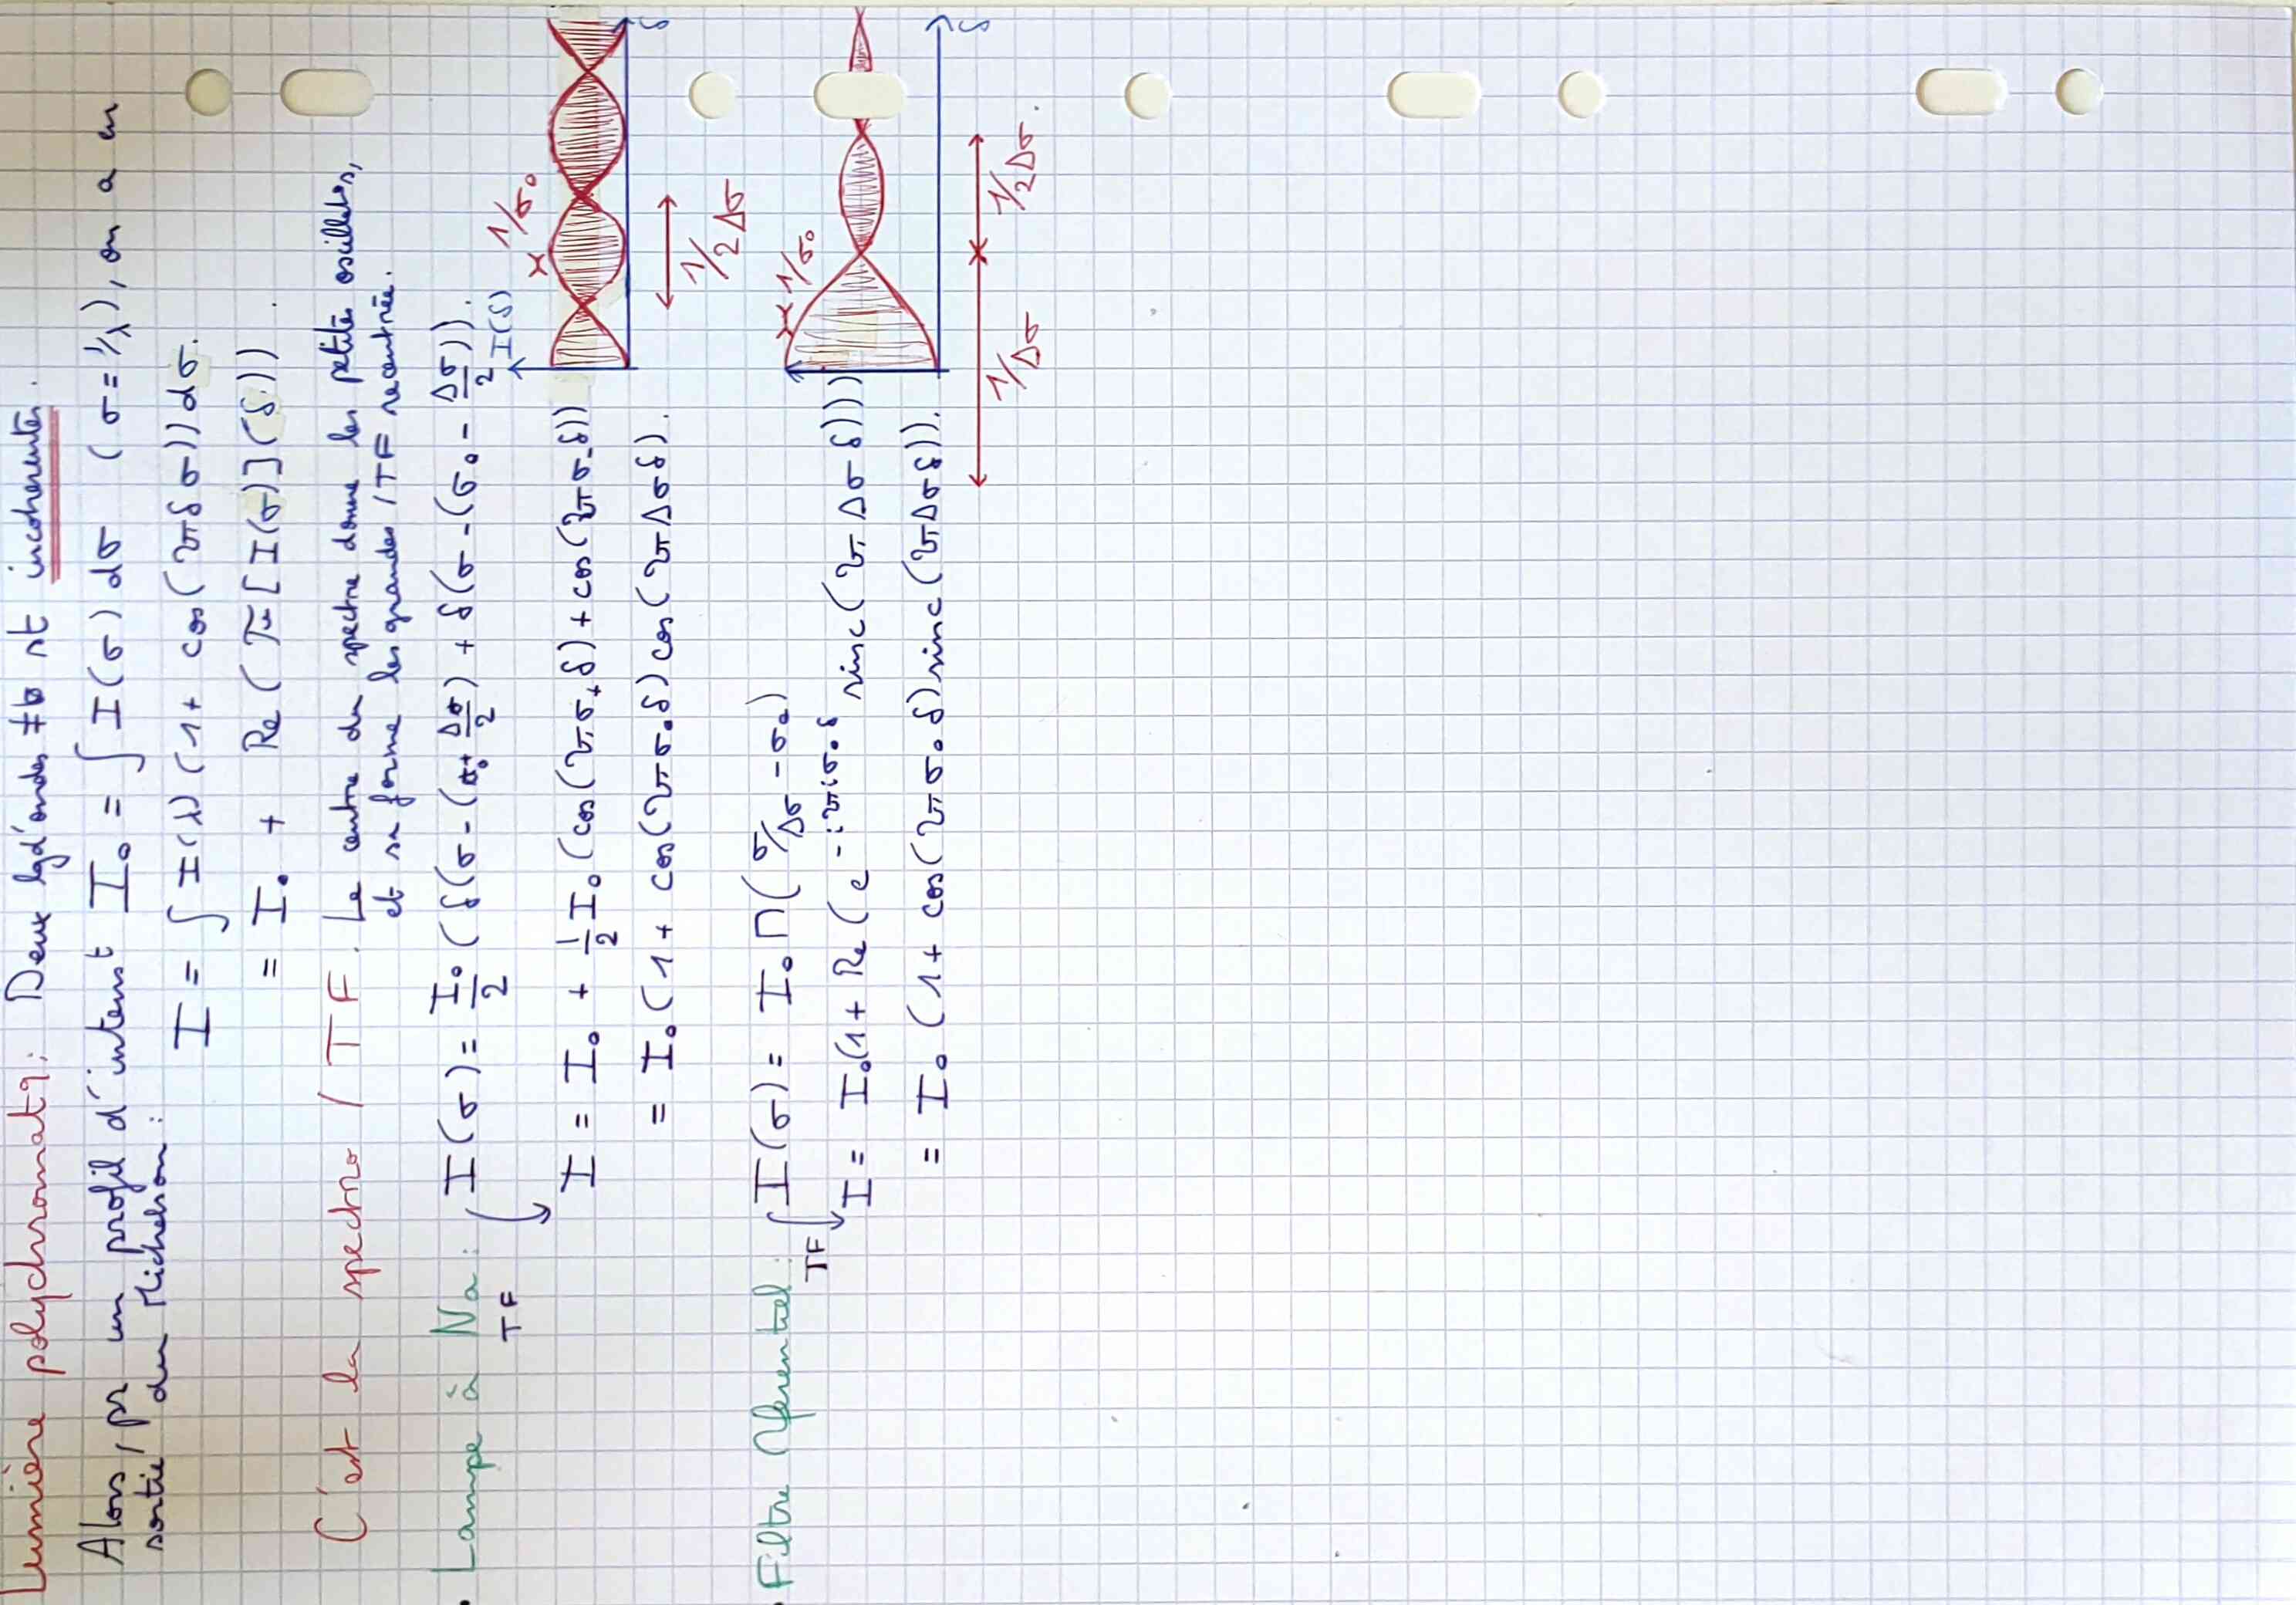 Lumière polychromatq: Deux lgd'ondes ≠ts st incohérentes.
Alors, pr un profil d'intensᵗ I₀ = ∫ I(σ) dσ (σ = 1/λ), on a en
sortie du Michelson:
I = ∫ I(λ) (1 + cos(2πδσ)) dσ.
= I₀ + Re(TF[I(σ)](δ)).
C'est la spectro / TF. Le centre du spectre donne les petites oscillatᵒs,
et sa forme les grandes / TF recentrée.
• Lampe à Na: I(σ) = I₀/2 (δ(σ - (σ₀ + Δσ/2) + δ(σ - (σ₀ - Δσ/2)).
TF
I = I₀ + 1/2 I₀ (cos(2πσ₊δ) + cos(2πσ₋δ))
= I₀ (1 + cos(2πσ₀δ) cos(2πΔσδ).
I(δ)
1/σ₀
δ
1/2Δσ
• Filtre Ωférentiel: I(σ) = I₀ Π(σ/Δσ - σ₀)
TF
I = I₀(1 + Re(e^-i2πσ₀δ sinc(2πΔσδ)))
= I₀ (1 + cos(2πσ₀δ) sinc(2πΔσδ)).
1/σ₀
δ
1/Δσ
1/2Δσ.